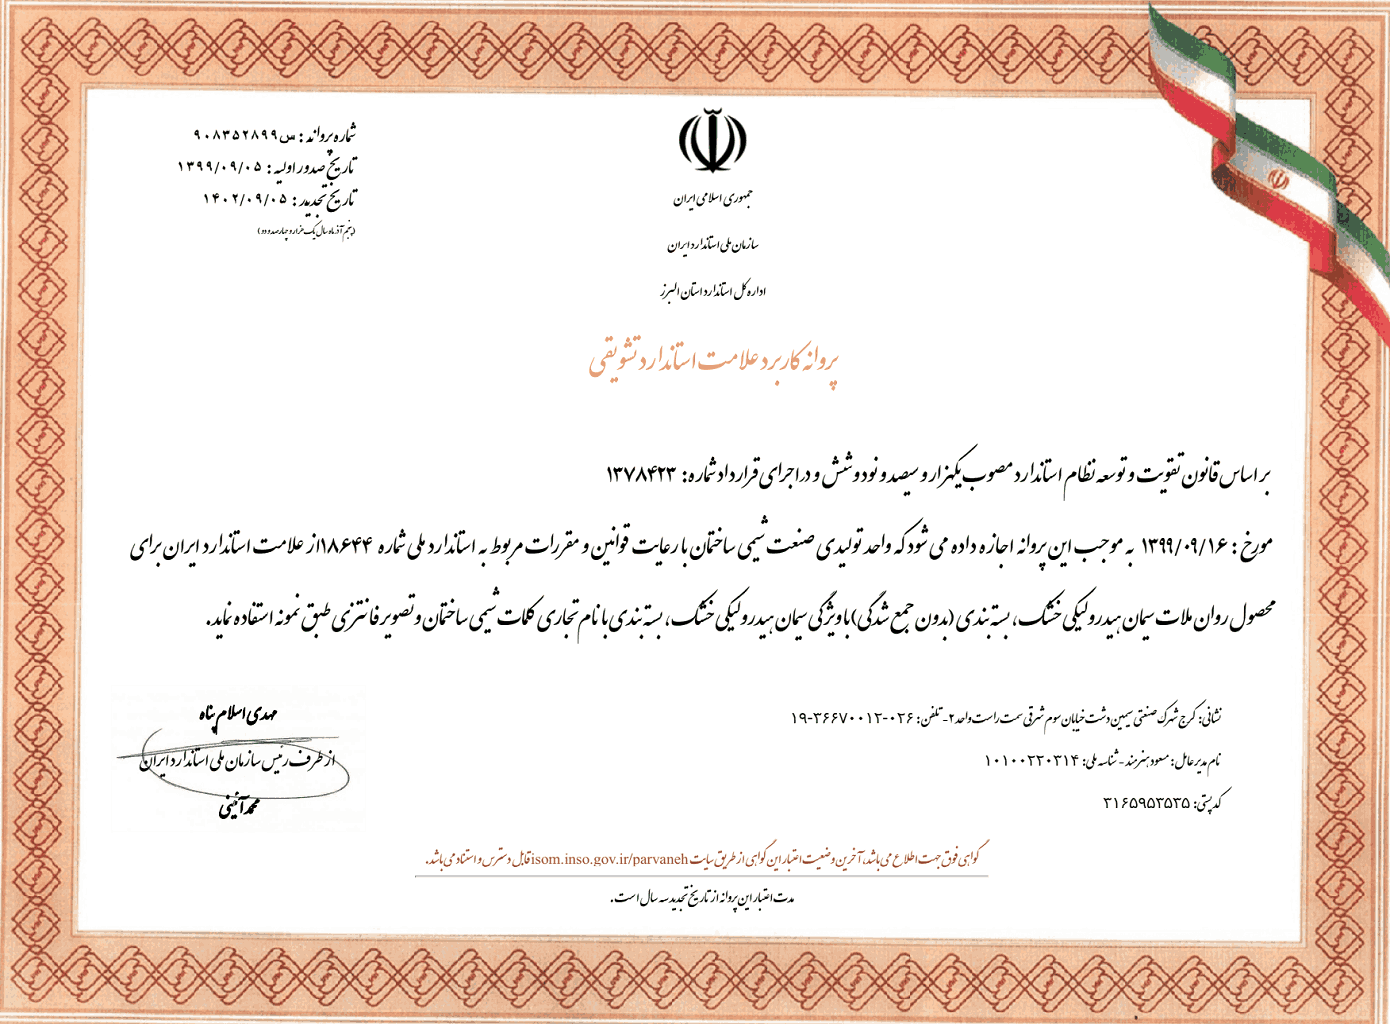 شماره پروانه : س ۹۰۸۳۵۲۸۹۹
تاریخ صدور اولیه : ۱۳۹۹/۰۹/۰۵
تاریخ تجدید : ۱۴۰۲/۰۹/۰۵
(پنجم آذر ماه سال یک هزار و چهارصد و دو)
جمهوری اسلامی ایران
سازمان ملی استاندارد ایران
اداره کل استاندارد استان البرز
پروانه کاربرد علامت استاندارد تشویقی
بر اساس قانون تقویت و توسعه نظام استاندارد مصوب یکهزار و سیصد و نود و شش و در اجرای قرارداد شماره: ۱۳۷۸۴۲۳
مورخ : ۱۳۹۹/۰۹/۱۶ به موجب این پروانه اجازه داده می شود که واحد تولیدی صنعت شیمی ساختمان با رعایت قوانین و مقررات مربوط به استاندارد ملی شماره ۱۸۶۴۴از علامت استاندارد ایران برای
محصول روان ملات سیمان هیدرولیکی خشک، بسته بندی (بدون جمع شدگی)باویژگی سیمان هیدرولیکی خشک، بسته بندی با نام تجاری کلمات شیمی ساختمان و تصویر فانتزی طبق نمونه استفاده نماید.
نشانی: کرج شهرک صنعتی سیمین دشت خیابان سوم شرقی سمت راست واحد ۲- تلفن: ۰۲۶-۳۶۶۷۰۰۱۲-۱۹
نام مدیر عامل: مسعود هنرمند - شناسه ملی: ۱۰۱۰۰۲۲۰۳۱۴
کد پستی: ۳۱۶۵۹۵۳۵۳۵
مهدی اسلام پناه
از طرف رئیس سازمان ملی استاندارد ایران
محمد آئینی
گواهی فوق جهت اطلاع می باشد، آخرین وضعیت اعتبار این گواهی از طریق سایت isom.inso.gov.ir/parvaneh قابل دسترس و استناد می باشد.
مدت اعتبار این پروانه از تاریخ تجدید سه سال است.